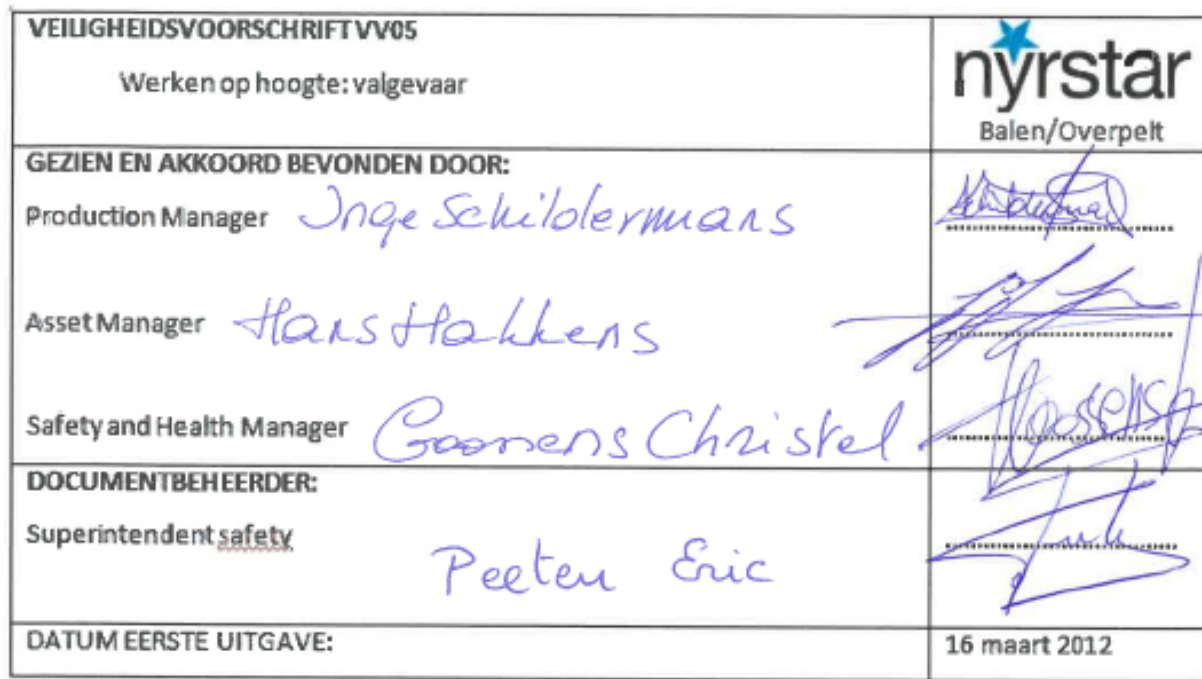 VEILIGHEIDSVOORSCHRIFT VV05
Werken op hoogte: valgevaar
nyrstar
Balen/Overpelt
GEZIEN EN AKKOORD BEVONDEN DOOR:
Production Manager Inge Schildermans
Asset Manager Hans Hakkens
Safety and Health Manager Goossens Christel
DOCUMENTBEHEERDER:
Superintendent safety
Peeters Eric
DATUM EERSTE UITGAVE: 16 maart 2012